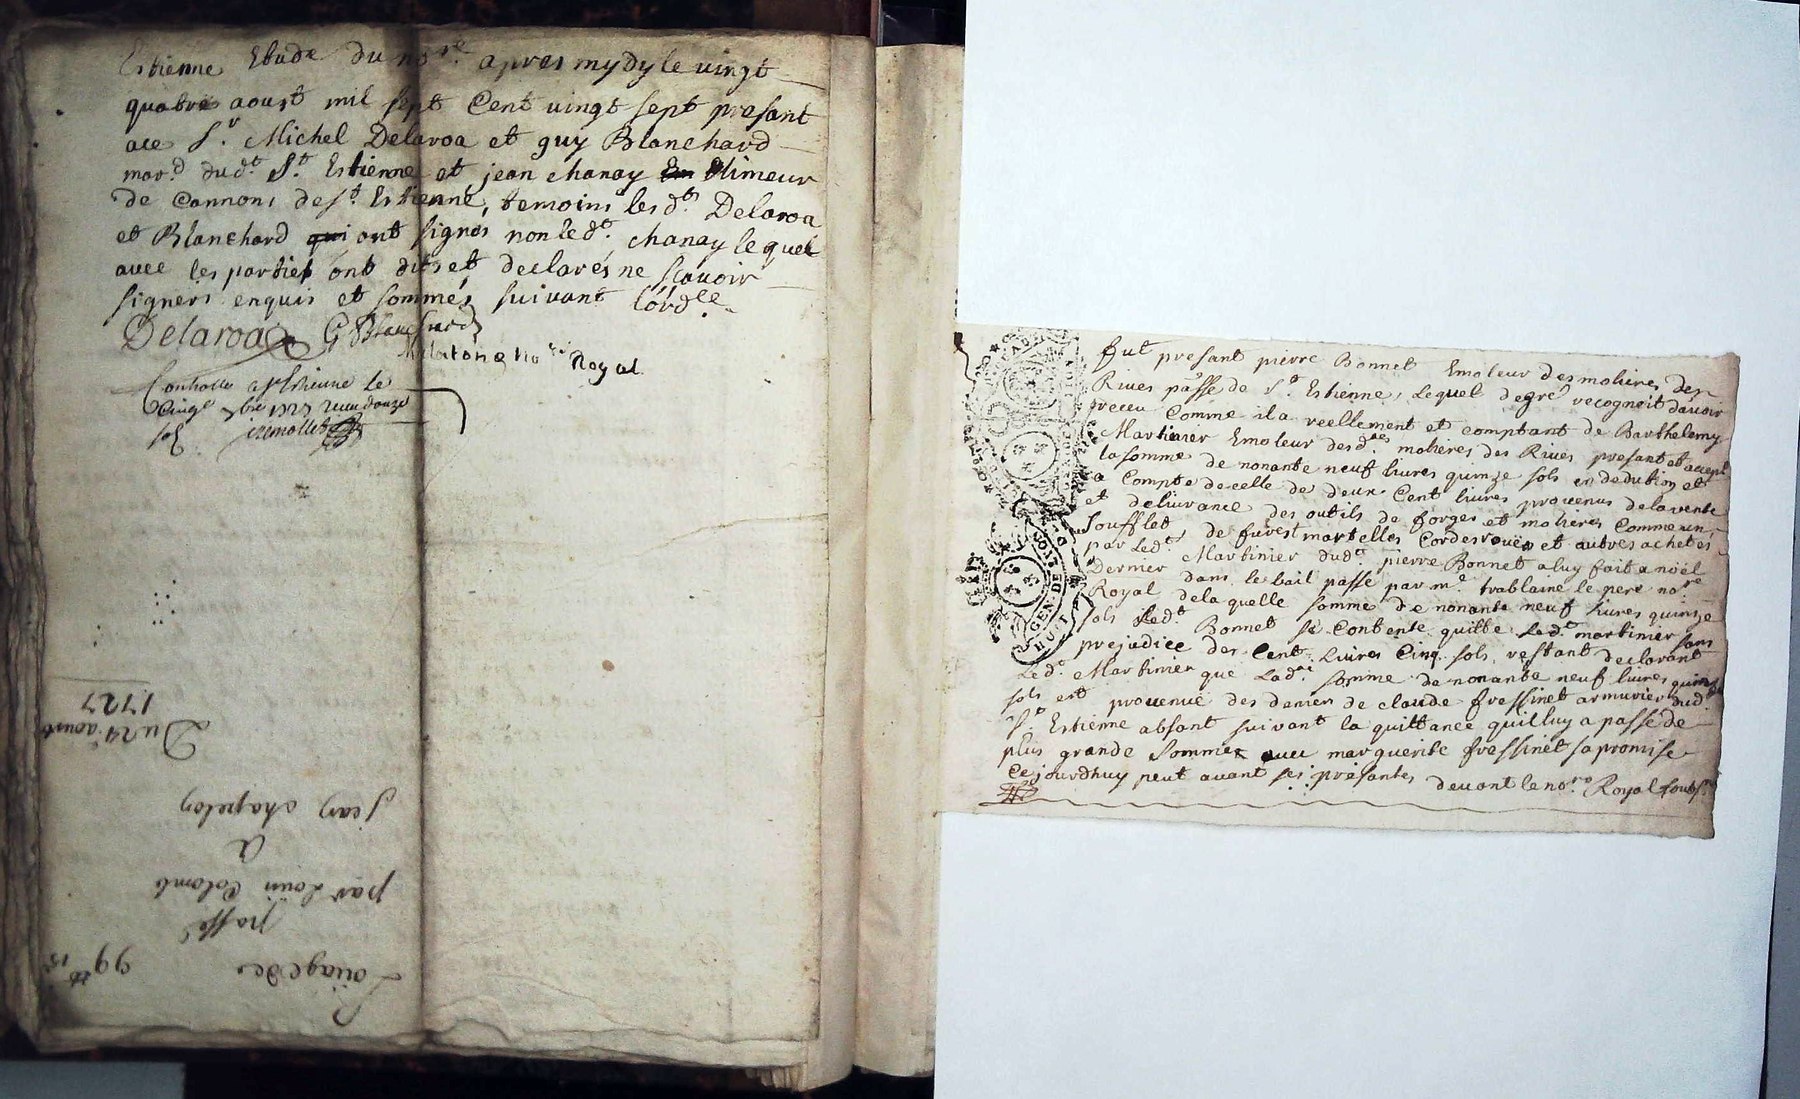 Estienne Etude du no.re apres mydy le vingt
quatre aoust mil sept Cent vingt sept presant
ace S.r Michel Delaroa et guy Blanchard
mar.d dud.t S.t Estienne et jean chanay limeur
de Cannons de s.t Estienne, temoins lesd.ts Delaroa
et Blanchard ont signes non led.t chanay lequel
avec les parties ont dits et declarés ne sçavoir
signers enquis et sommés suivant l'ord.ce
Delaroa G Blanchard
no.re Royal
Controlle a st Estienne le
vingt 1727 receu douze
sols
fut presant pierre Bonnet Emoleur des molieres des
Rives passe de S.t Estienne, Lequel de gré recognoit d'avoir
receu Comme il a reellement et comptant de Barthelemy
Martinier Emoleur desd.es molieres des Rives presant et accept
la somme de nonante neuf livres quinze sols en dedution et
a Compte de celle de deux Cent livres provenus de la vente
et delivrance des outils de forges et molieres Comme un
Soufflet de furest martelles Cordes roües et autres achetés
par Led.t Martinier dud.t pierre Bonnet a luy fait a noel
Dernier dans le bail passé par m.e trablaine le pere no.re
Royal de la quelle somme de nonante neuf livres quinze
sols Led.t Bonnet se Contente quitte Led.t martinier sans
prejudice des Cent Livres Cinq sols restant declarant
Led.t Martinier que Lad.e somme de nonante neuf livres quinze
sols est provenue des denier de claude fressinet armurier dud.t
S.t Estienne absant suivant la quittance quil luy a passé de
plus grande Somme avec marguerite fressinet sa promise
Cejourdhuy peut avant ses presantes devant le no.re Royal soubs.né
GEN. DE
Du 24 aoust
1727
Loüagede
passé
par Louis Colomb
A
jean chapelon
99 tt 15